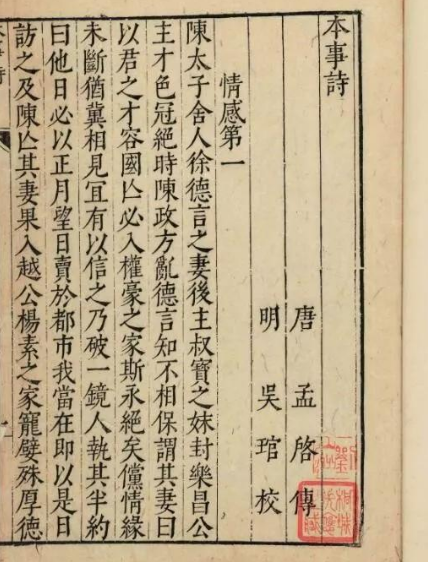 本事詩
唐 孟啓 傳
明 吳琯 校
情感第一
陳太子舍人徐德言之妻後主叔寶之妹封樂昌公
主才色冠絶時陳政方亂德言知不相保謂其妻曰
以君之才容國亾必入權豪之家斯永絶矣儻情緣
未斷猶冀相見宜有以信之乃破一鏡人執其半約
曰他日必以正月望日賣於都市我當在即以是日
訪之及陳亾其妻果入越公楊素之家寵嬖殊厚德